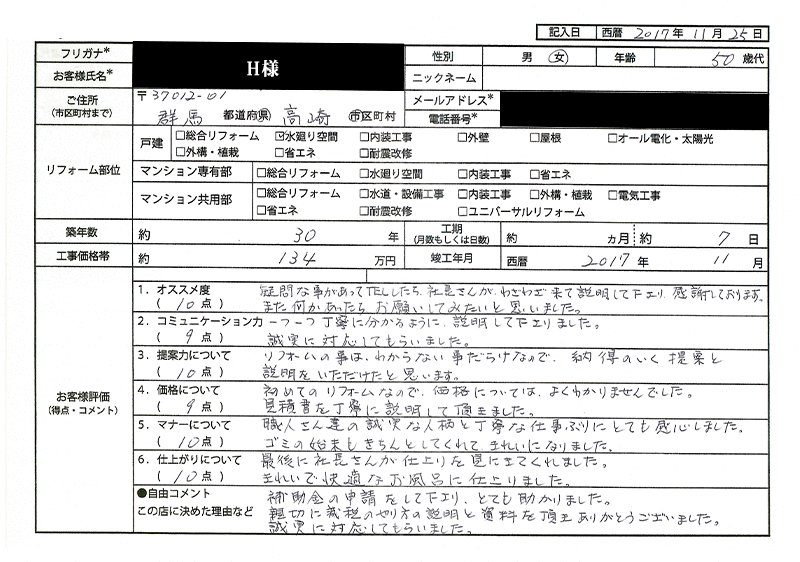 記入日 西暦 2017年 11月 25日
フリガナ*
お客様氏名*
H様
性別 男 女 年齢 50歳代
ニックネーム
ご住所
(市区町村まで)
〒37012-01
群馬 都道府県 高崎 市区町村
メールアドレス*
電話番号*
リフォーム部位
戸建 □総合リフォーム ☑水廻り空間 □内装工事 □外壁 □屋根 □オール電化・太陽光
□外構・植栽 □省エネ □耐震改修
マンション専有部 □総合リフォーム □水廻り空間 □内装工事 □省エネ
マンション共用部 □総合リフォーム □水道・設備工事 □内装工事 □外構・植栽 □電気工事
□省エネ □耐震改修 □ユニバーサルリフォーム
築年数 約 30 年 工期(月数もしくは日数) 約 ヵ月 約 7 日
工事価格帯 約 134 万円 竣工年月 西暦 2017年 11月
お客様評価
(得点・コメント)
1.オススメ度 疑問な事があってTELしたら、社長さんが、わざわざ来て説明して下エり、感謝しております。
( 10 点 ) また何かあったらお願いしてみたいと思いました。
2.コミュニケーション力 一つ一つ丁寧に分かるように、説明して下エりました。
( 9 点 ) 誠実に対応してもらいました。
3.提案力について リフォームの事は、わからない事だらけなので、納得のいく提案と
( 10 点 ) 説明をいただけたと思います。
4.価格について 初めてのリフォームなので、価格については、よくわかりませんでした。
( 9 点 ) 見積書を丁寧に説明して頂きました。
5.マナーについて 職人さん達の誠実な人柄と丁寧な仕事ぶりにとても感心しました。
( 10 点 ) ゴミの始末もきちんとしてくれて、きれいになりました。
6.仕上がりについて 最後に社長さんが仕上りを見にきてくれました。
( 10 点 ) きれいで快適なお風呂に仕上りました。
●自由コメント
この店に決めた理由など
補助金の申請をして下エり、とても助かりました。
親切に減税のやり方の説明と資料を頂きありがとうございました。
誠実に対応してもらいました。